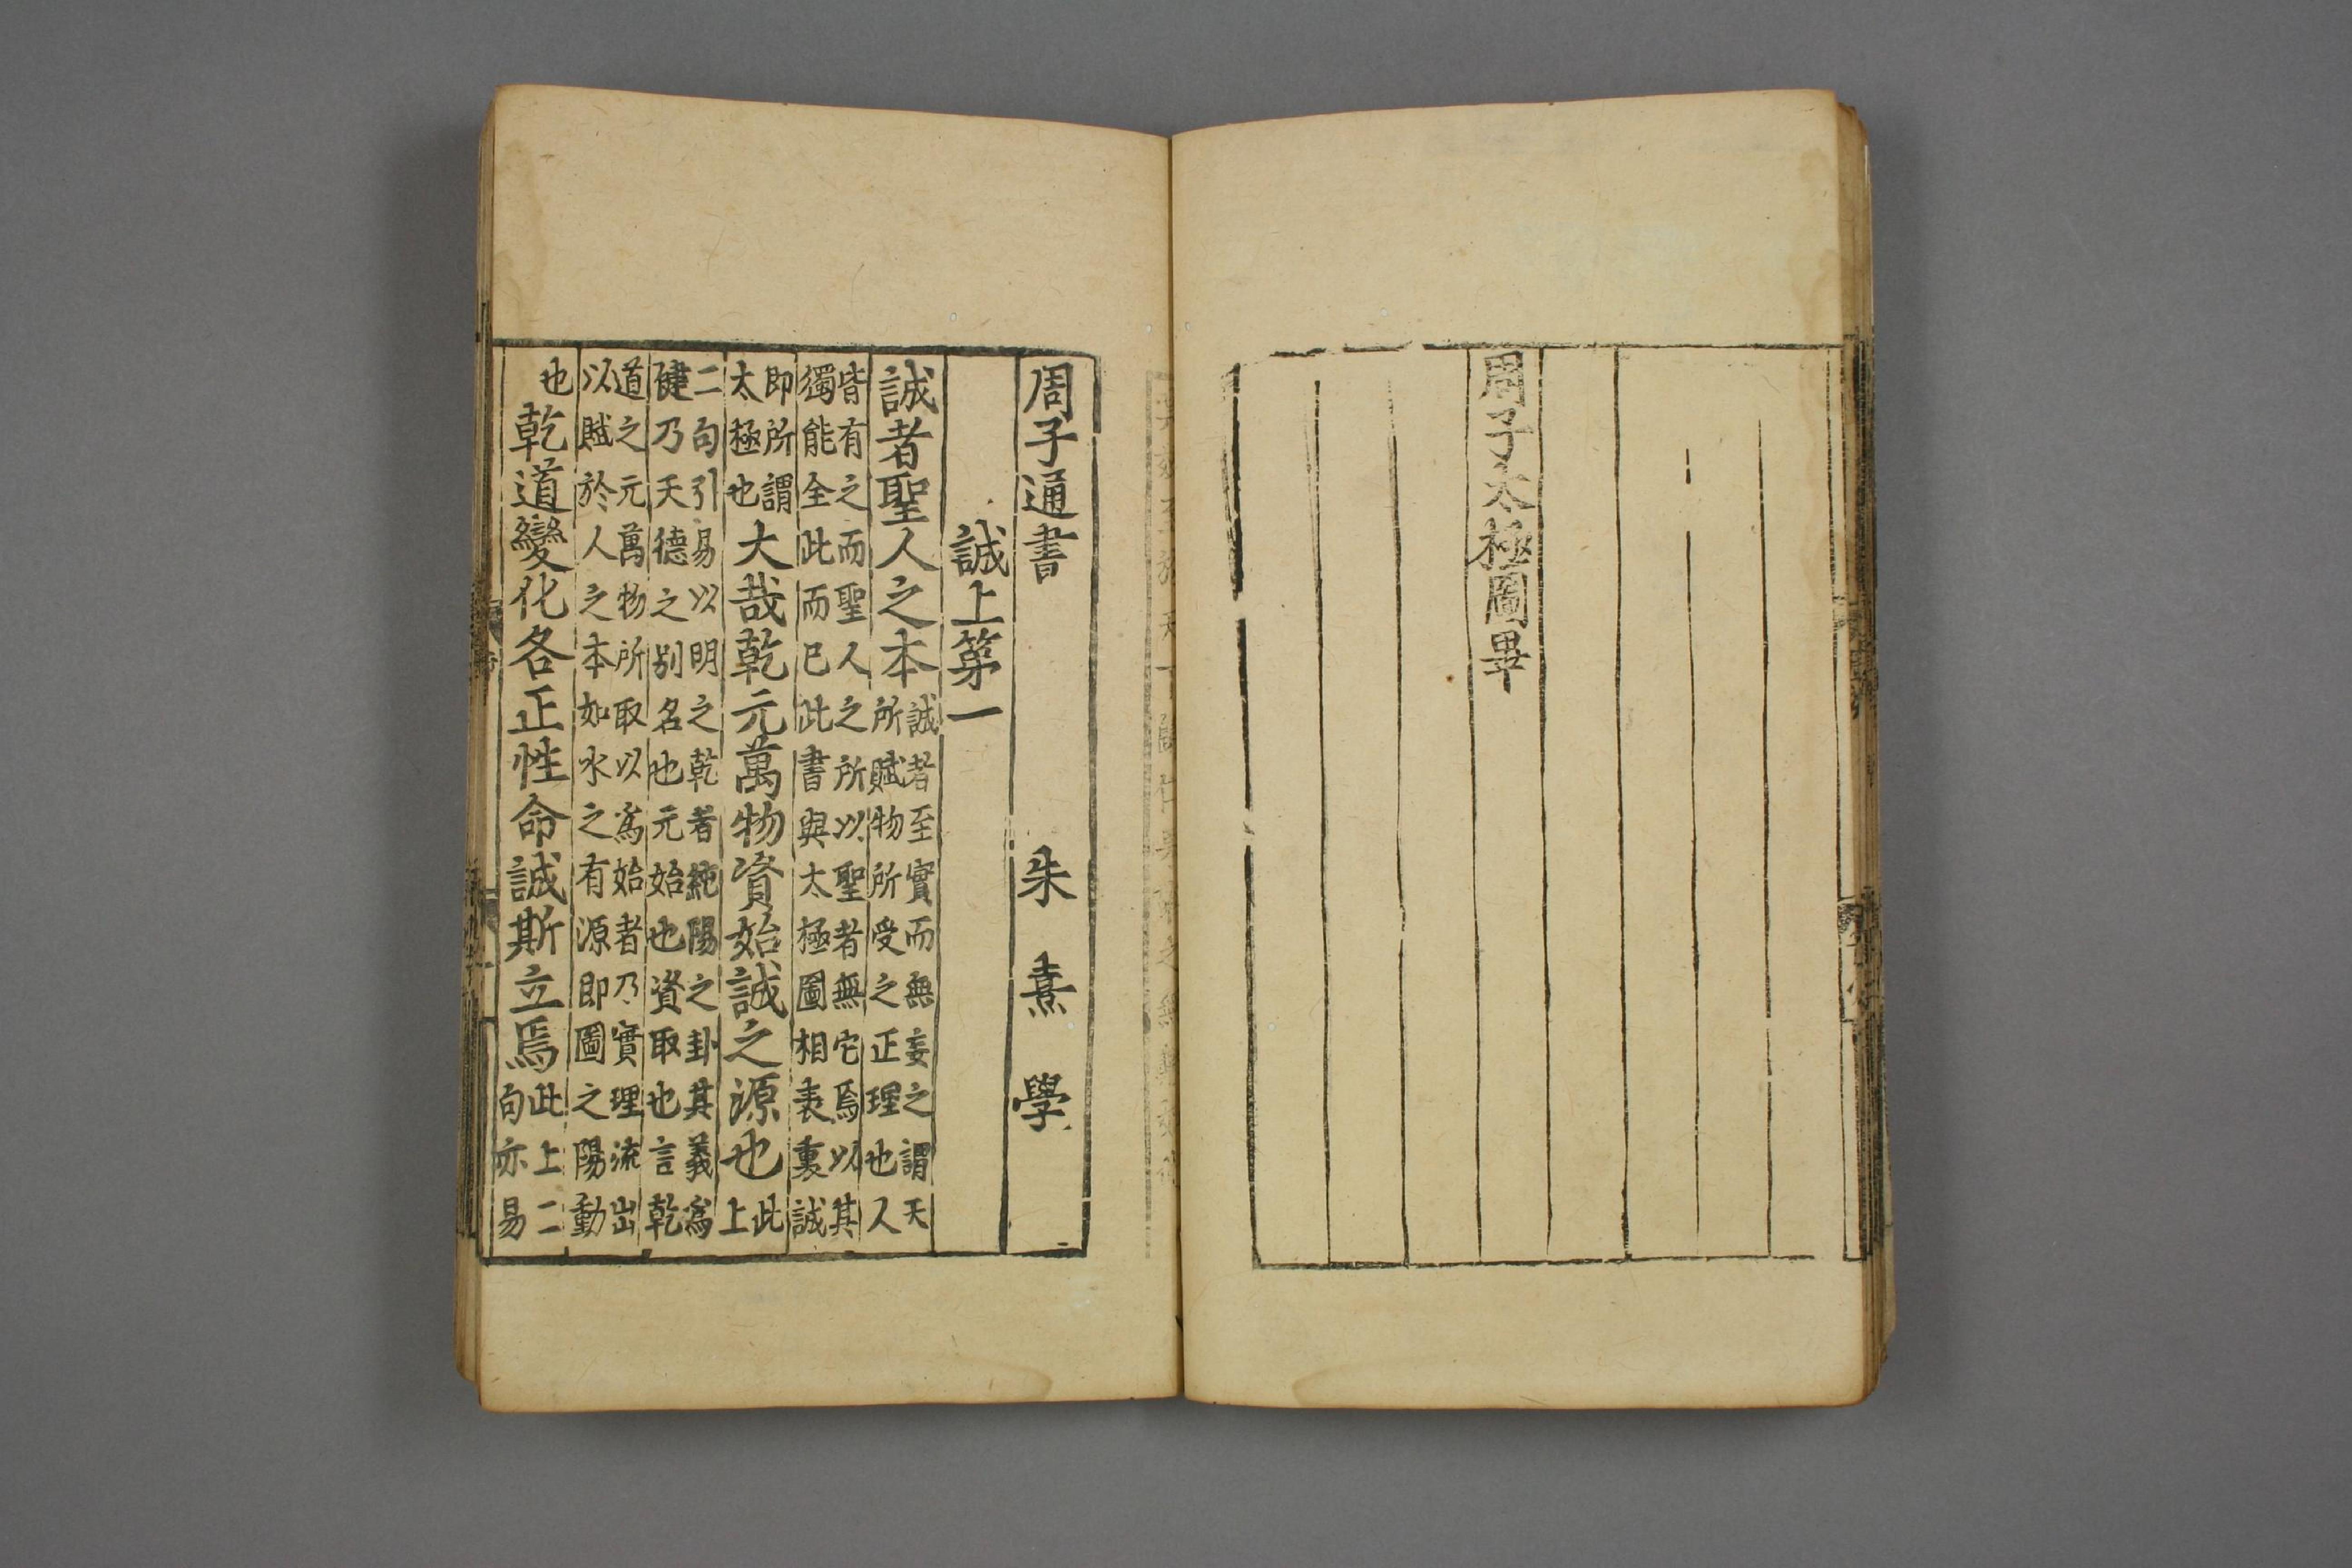 周子太極圖畢
周子通書 朱熹學
誠上第一
誠者聖人之本誠者至實而無妄之謂天所賦物所受之正理也人
皆有之而聖人之所以聖者無它焉以其
獨能全此而已此書與太極圖相表裏誠
即所謂太極也大哉乾元萬物資始誠之源也此上
二句引易以明之乾者純陽之卦其義爲
健乃天德之别名也元始也資取也言乾
道之元萬物所取以爲始者乃實理流出
以賦於人之本如水之有源即圖之陽動
也乾道變化各正性命誠斯立焉此上二句亦易